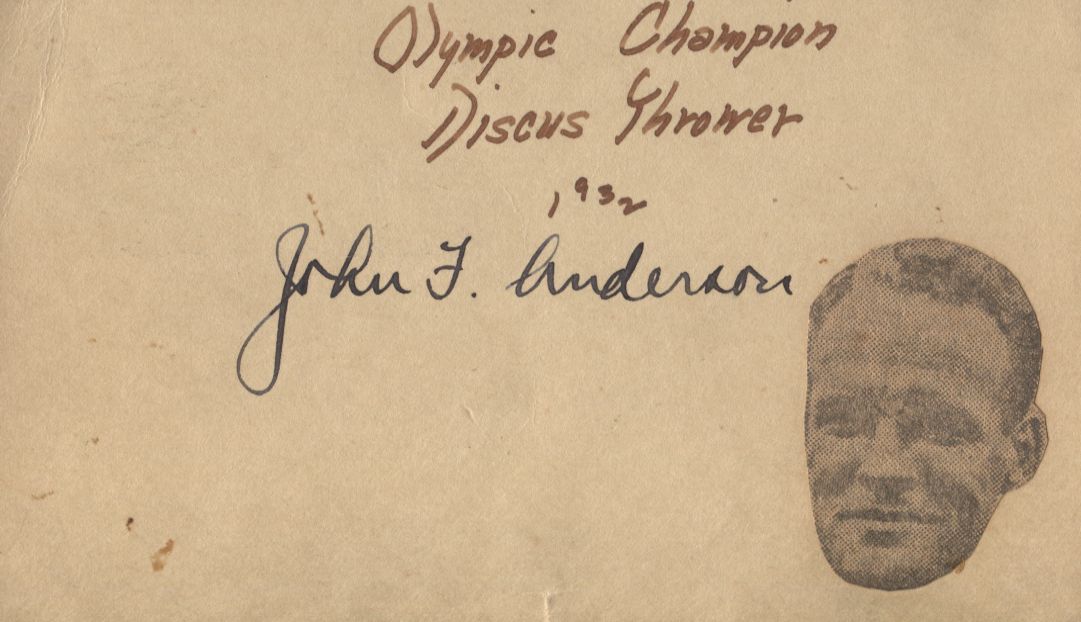 Olympic Champion
Discus Thrower
1932
John F. Anderson